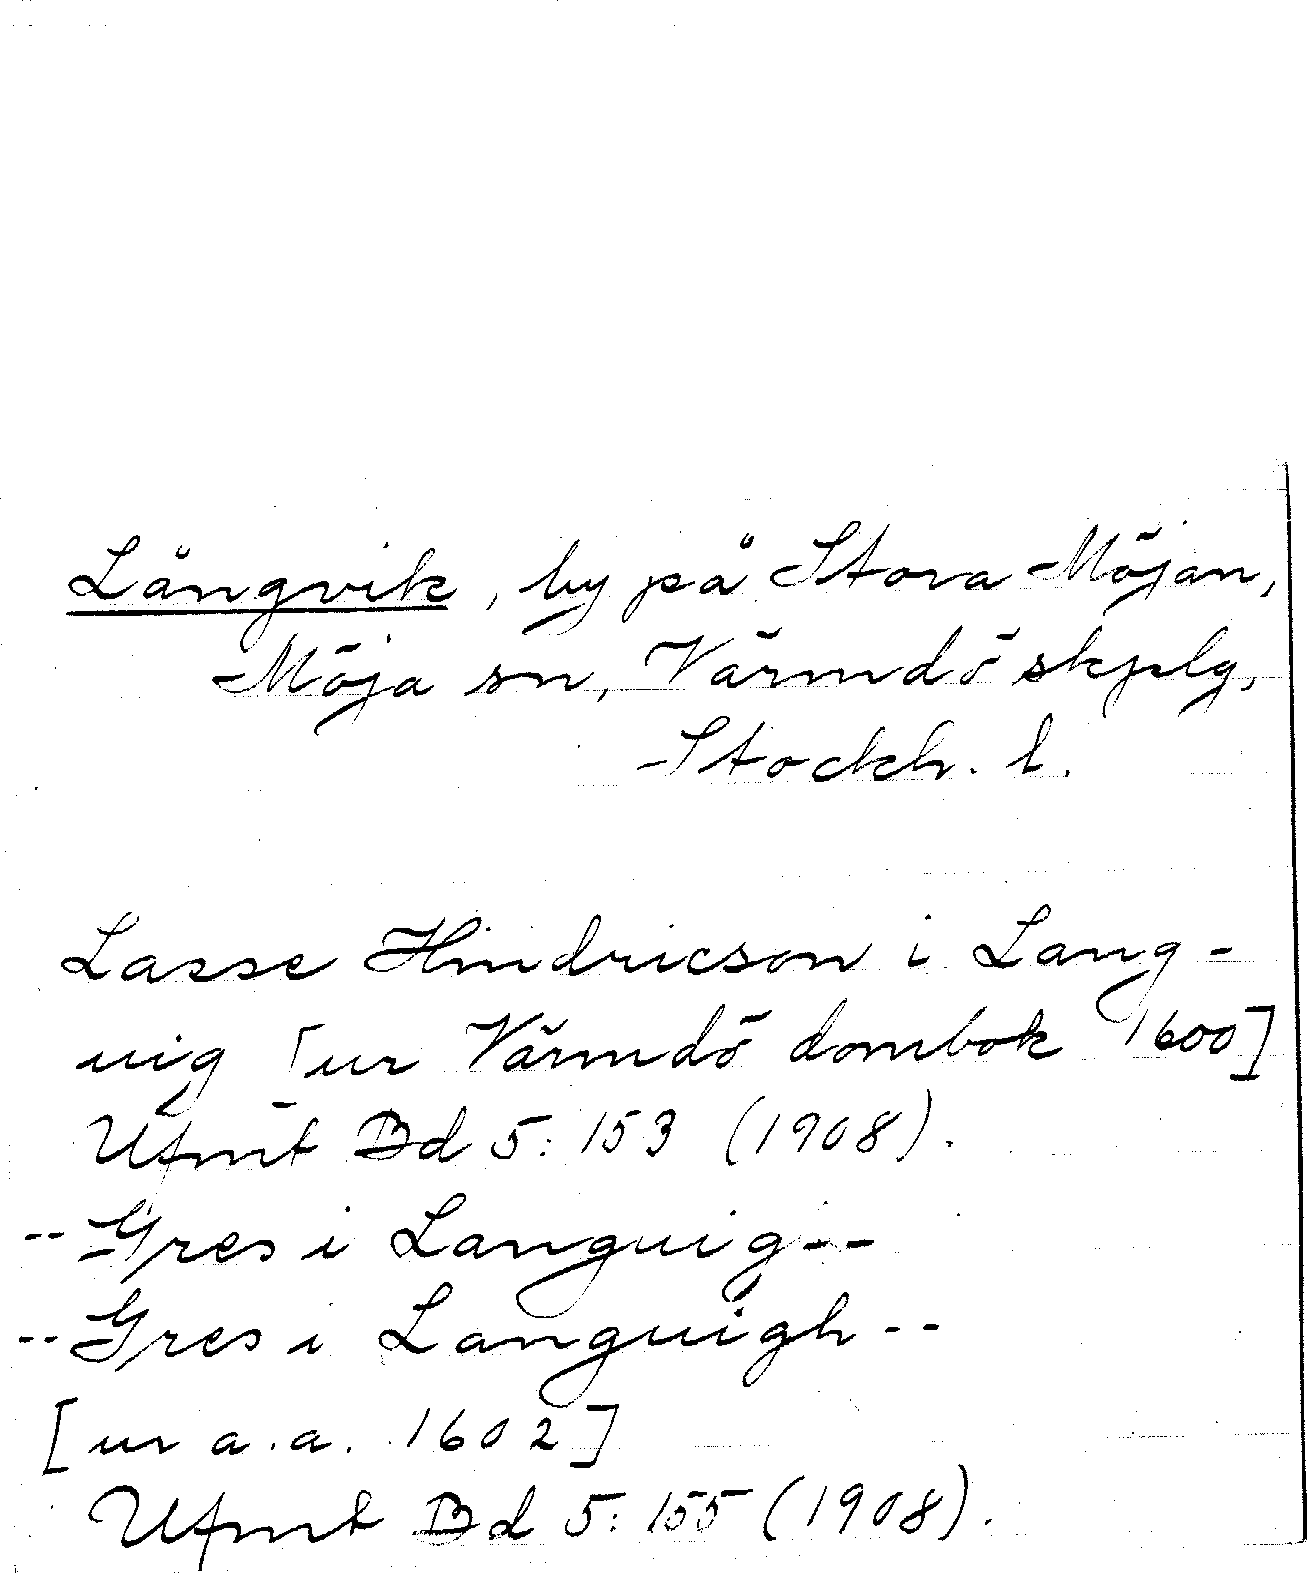 Långvik, by på Stora Möjan,
Möja sn, Värmdö skplg,
Stockh. l.
Lasse Hindricson i Lang-
uig [ur Värmdö dombok 1600]
Ufmt Bd 5:153 (1908).
--Gres i Languig--
--Gres i Languigh--
[ur a.a. 1602]
Ufmt Bd 5:155 (1908).